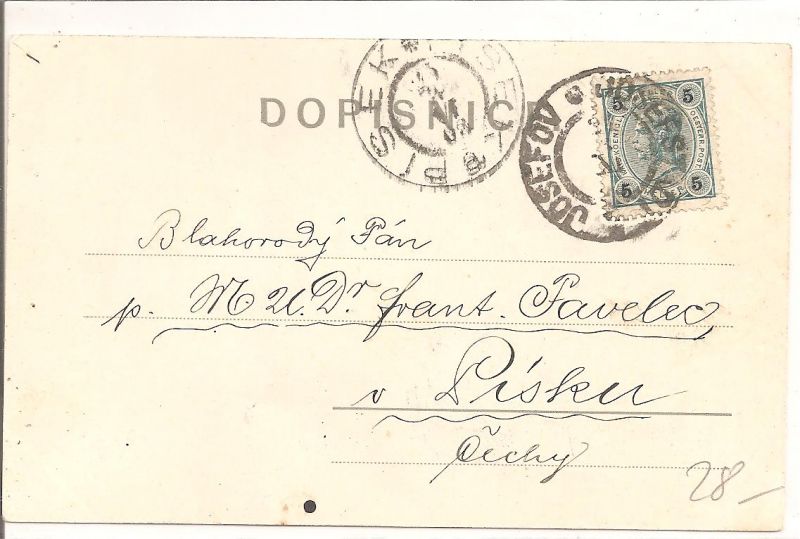 DOPISNICE
PISEK * PISEK
JOSEFOV * JOSEFSTADT
5 5
5 5
Blahorodý Pán
p. MUDr. frant. Pavelec
v Písku
Čechy
28-